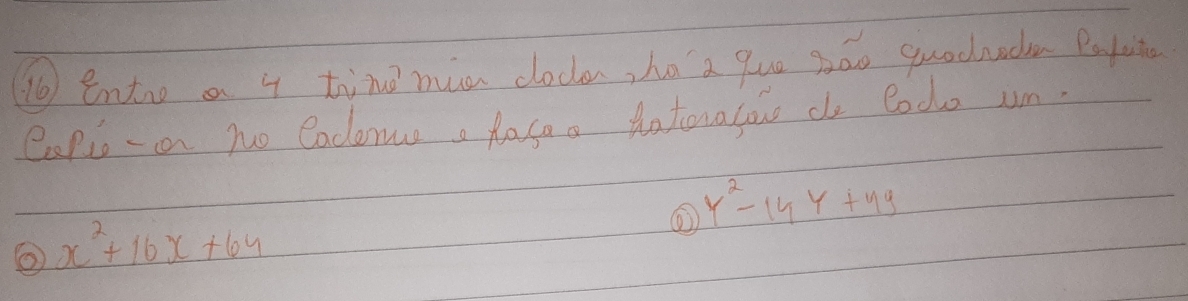 16) Entre os 4 trinômios dados, há 2 que são quadrados Perfeitos.
Copie-os no Caderno e faça a fatoração de Cada um.
b) y² - 14y + 49
a) x² + 16x + 64